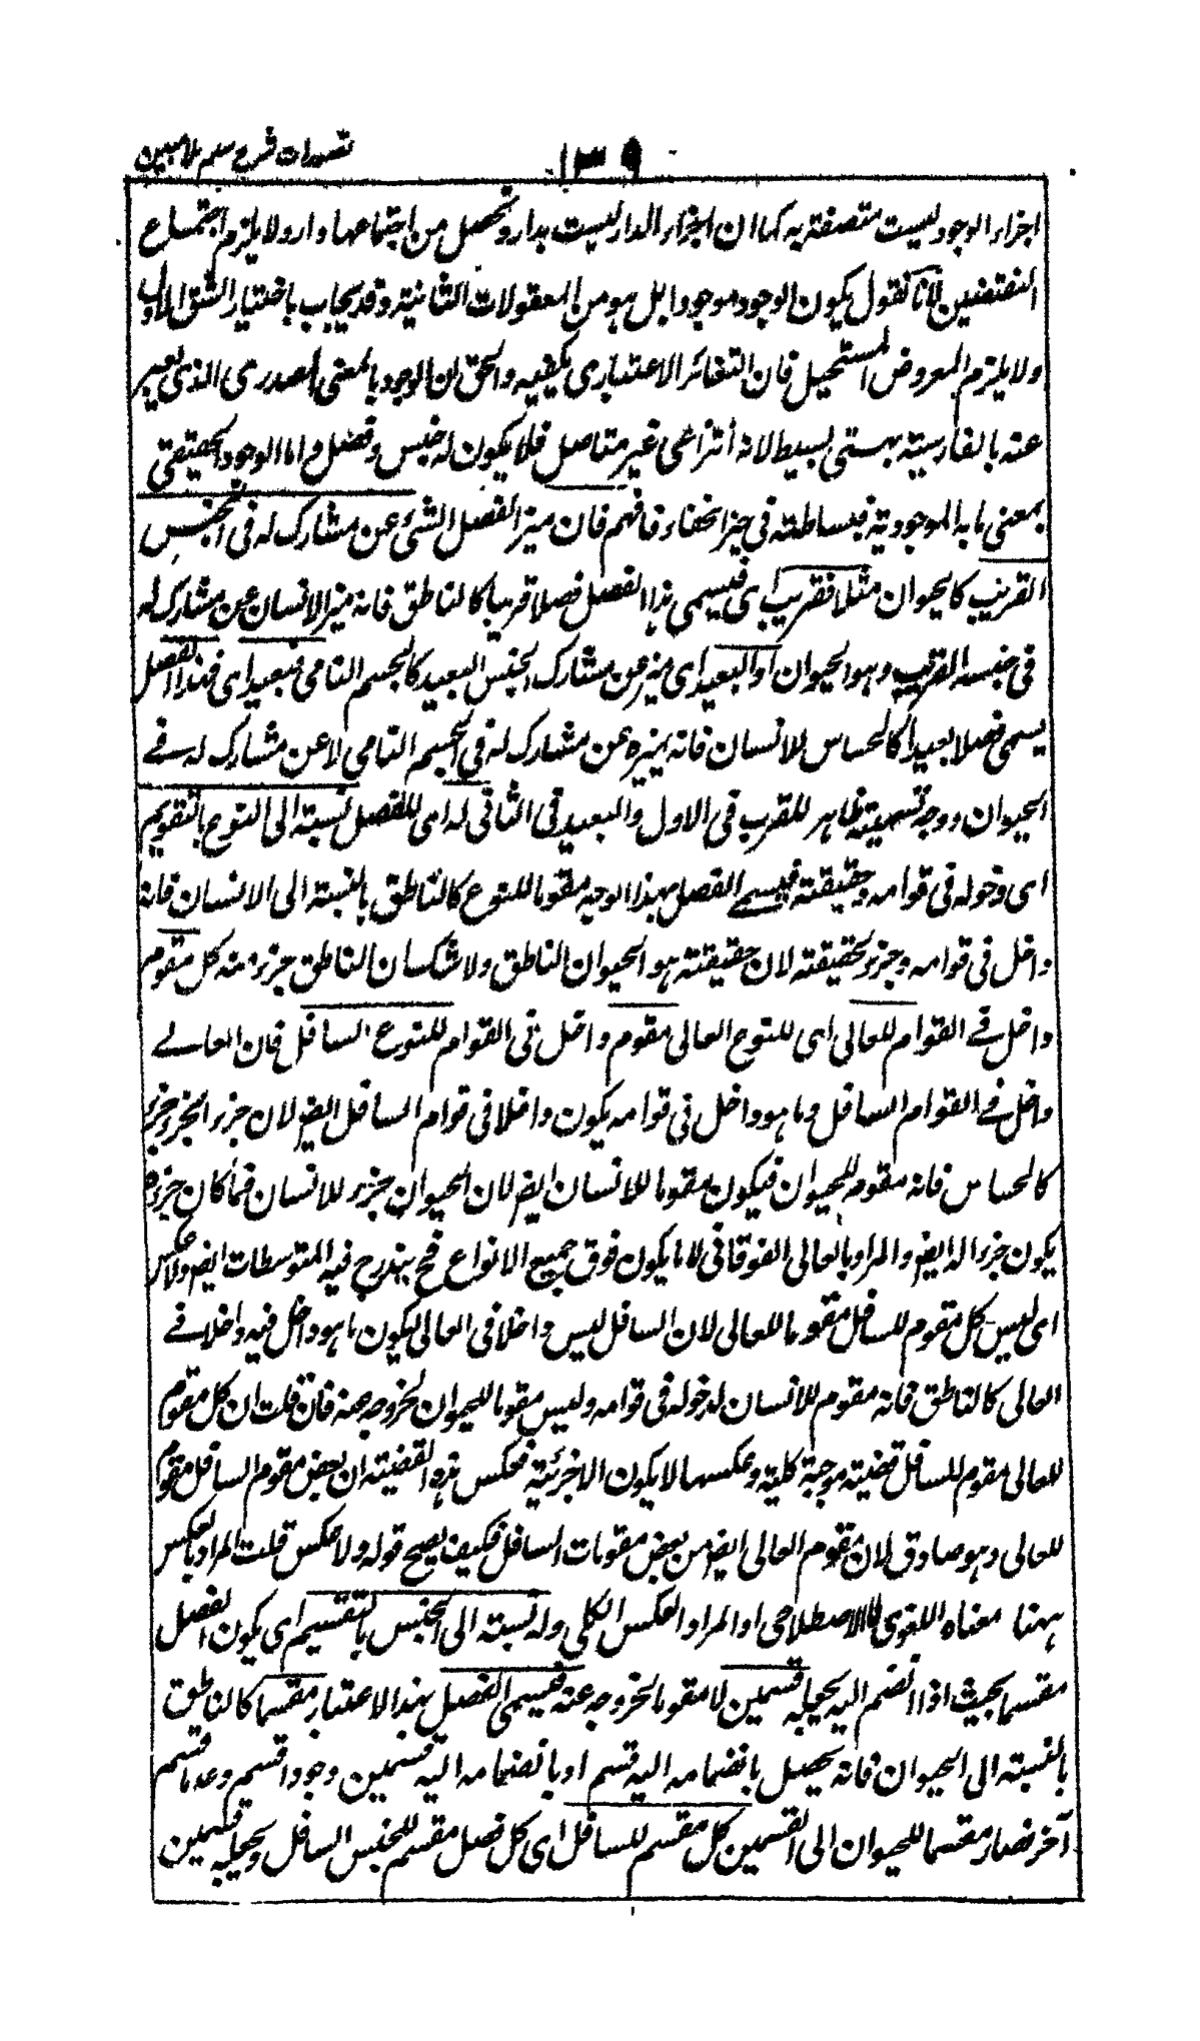 تصورات شرح سلم ملا مبین
۱۳۹
اجزاء الوجود لیست متصفة به کما ان اجزاء الدار لیست بدار و تحصل من اجتماعها دار و لا یلزم اجتماع
النقیضین لانا نقول یکون الوجود موجودا بل هو من المعقولات الثانیة و قد یجاب باختیار الشق الاول
و لا یلزم العروض المستحیل فان التغائر الاعتباری یکفیه و الحق ان الوجود بالمعنی المصدری الذی یعبر
عنه بالفارسیة بهستی بسیط لانه انتزاعی غیر متاصل فلا یکون له جنس و فصل و اما الوجود الحقیقی
بمعنی ما به الموجودیة فبساطته فی حیز الخفاء فافهم فان میز الفصل الشئ عن مشارک له فی الجنس
القریب کالحیوان مثلا فقریب ای فیسمی هذا الفصل فصلا قریبا کالناطق فانه میز الانسان عن مشارک له
فی جنسه القریب و هو الحیوان او البعید ای میز عن مشارک الجنس البعید کالجسم النامی فبعید ای فهذا الفصل
یسمی فصلا بعیدا کالحساس للانسان فانه یمیزه عن مشارک له فی الجسم النامی لا عن مشارک له فے
الحیوان و وجه تسمیته ظاهر للقرب فی الاول و البعید فی الثانی له ای للفصل نسبة الی النوع بالتقویم
ای دخوله فی قوامه و حقیقته فیسمے الفصل بهذا الوجه مقوما للنوع کالناطق بالنسبة الی الانسان فانه
داخل فی قوامه و جزء لحقیقته لان حقیقته هو الحیوان الناطق و لا شک ان الناطق جزء منه کل مقوم
داخل فے القوام للعالی ای للنوع العالی مقوم داخل فی القوام للنوع السافل فان العالے
داخل فے القوام السافل و ما هو داخل فی قوامه یکون داخلا فی قوام السافل ایضا لان جزء الجزء جزء
کالحساس فانه مقوم للحیوان فیکون مقوما للانسان ایضا لان الحیوان جزء للانسان فما کان جزءه
یکون جزءا له ایضا و المراد بالعالی الفوقانی لا ما یکون فوق جمیع الانواع فح یندرج فیه المتوسطات ایضا و لا عکس
ای لیس کل مقوم للسافل مقوما للعالی لان السافل لیس داخلا فی العالی لیکون ما هو داخل فیه داخلا فے
العالی کالناطق فانه مقوم للانسان لدخوله فی قوامه و لیس مقوما للحیوان لخروجه عنه فان قلت ان کل مقوم
للعالی مقوم للسافل قضیة موجبة کلیة و عکسها لا یکون الا جزئیة فعکس هذه القضیة ان بعض مقوم السافل مقوم
للعالی و هو صادق لان مقوم العالی ایضا من بعض مقومات السافل فکیف یصح قوله و لا عکس قلت المراد بالعکس
ههنا معناه اللغوی لا الاصطلاحی او المراد العکس الکلی و له نسبة الی الجنس بالتقسیم ای یکون الفصل
مقسما بحیث اذا انضم الیه یجعله قسمین لا مقوما لخروجه عنه فیسمی الفصل بهذا الاعتبار مقسما کالناطق
بالنسبة الی الحیوان فانه یحصل بانضمامه الیه قسم او بانضمامه الیه قسمین وجودا قسم و عدما قسم
آخر فصار مقسما للحیوان الی القسمین کل مقسم للسافل ای کل فصل مقسم للجنس السافل و یجعله قسمین